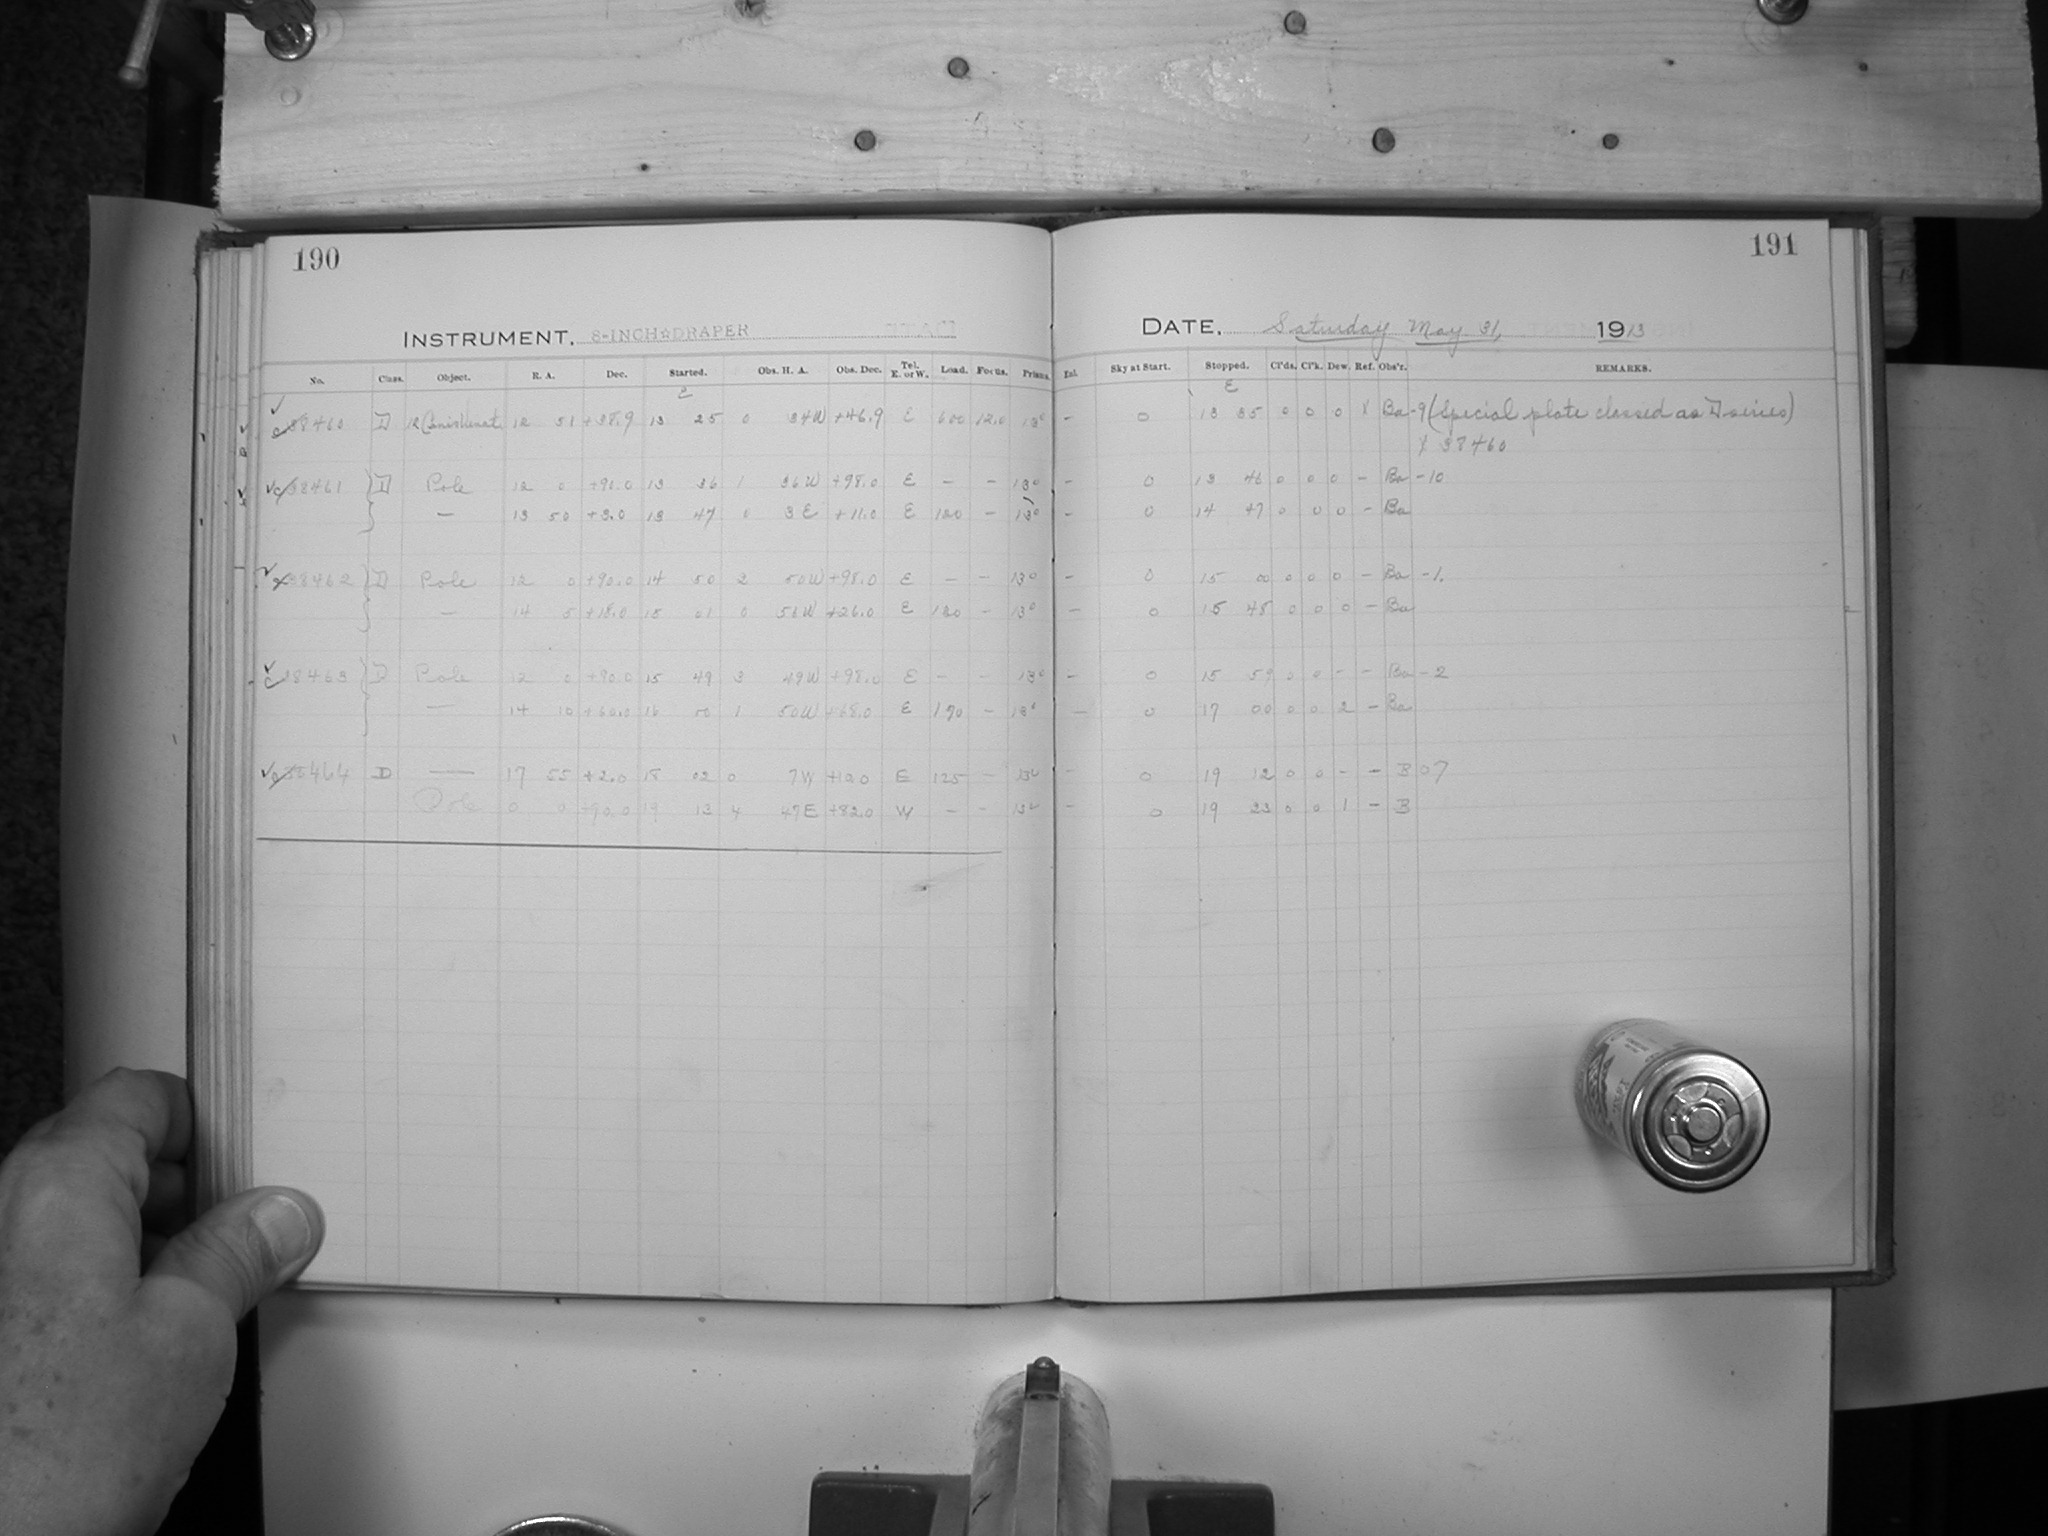 190
191
INSTRUMENT, 8-INCH☆DRAPER
DATE, Saturday May 31, 1913
No. Class. Object. R. A. Dec. Started. Obs. H. A. Obs. Dec. Tel. E. or W. Load. Focus. Prism. Enl. Sky at Start. Stopped. Cl'ds. Cl'k. Dew. Ref. Obs'r. REMARKS.
E
38460 D 12 51 +38.9 13 25 0 34W +46.9 E 600 12.0 13° - 0 13 35 0 0 0 Ba -9 (Special plate classed as D series)
38460
38461 D Pole 12 0 +90.0 13 36 1 36W +98.0 E - - 13° - 0 13 46 0 0 0 - Ba -10
— 13 50 +3.0 13 47 0 3E +11.0 E 120 - 13° - 0 14 47 0 0 0 - Ba
38462 D Pole 12 0 +90.0 14 50 2 50W +98.0 E - - 13° - 0 15 00 0 0 0 - Ba -1.
— 14 5 +18.0 15 01 0 56W +26.0 E 120 - 13° - 0 15 45 0 0 0 - Ba
38463 D Pole 12 0 +90.0 15 49 3 49W +98.0 E - - 13° - 0 15 59 0 0 - - Ba -2
— 14 10 +60.0 16 00 1 50W +68.0 E 170 - 13° - 0 17 00 0 0 2 - Ba
38464 D — 17 55 +2.0 18 02 0 7W +10.0 E 125 - 13° - 0 19 12 0 0 - - B 07
Pole 0 0 +90.0 19 13 4 47E +82.0 W - - 13° - 0 19 23 0 0 1 - B